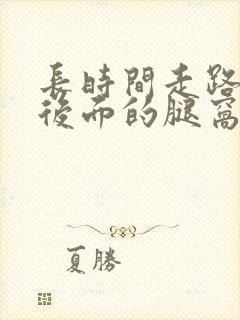 長時間走路
後面的腿窩
夏勝